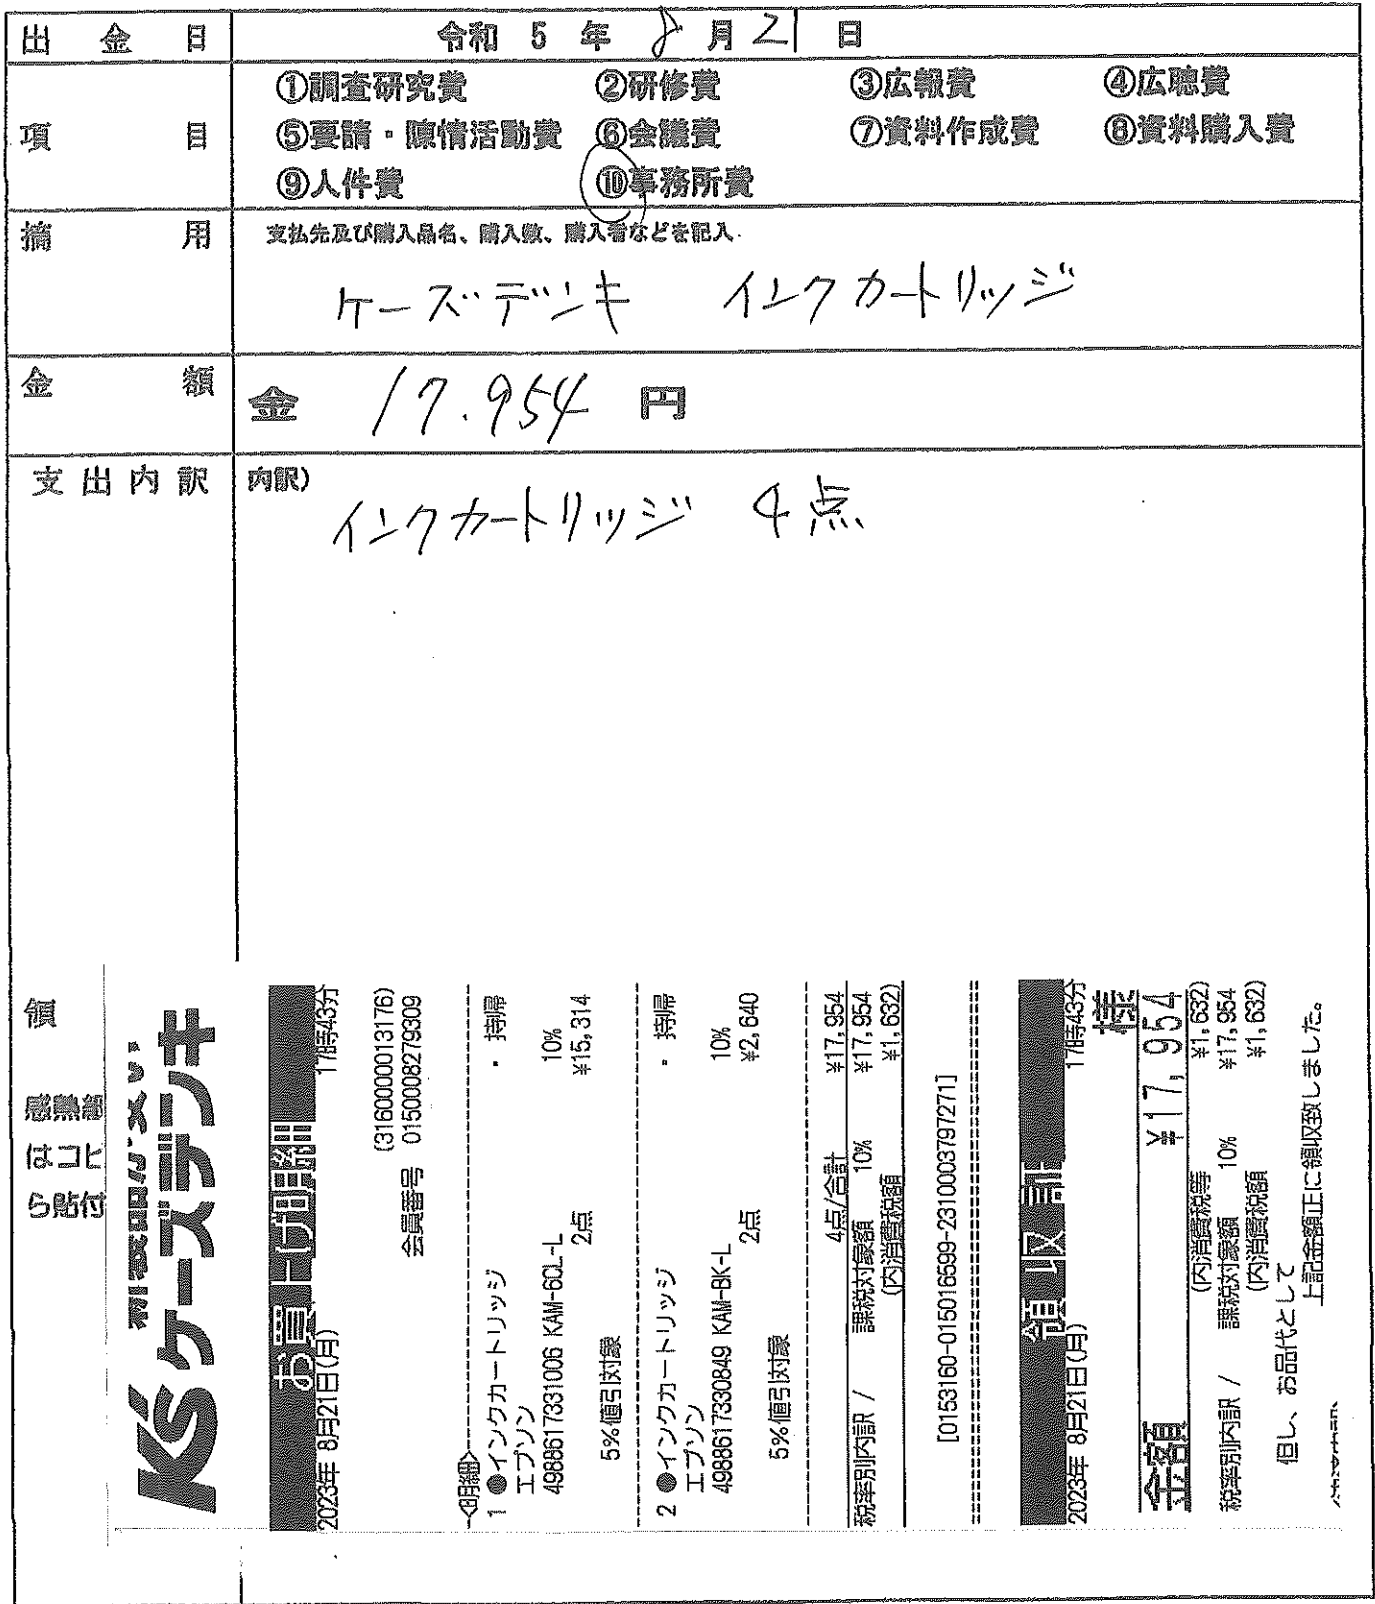 出金日 令和 5 年 8 月 21 日
項目
①調査研究費 ②研修費 ③広報費 ④広聴費
⑤要請・陳情活動費 ⑥会議費 ⑦資料作成費 ⑧資料購入費
⑨人件費 ⑩事務所費
摘用 支払先及び購入品名、購入数、購入者などを記入
ケーズデンキ インクカートリッジ
金額 金 17.954 円
支出内訳 内訳)
インクカートリッジ 4点
領
感熱
はコピ
ら貼付
K'sケーズデンキ
お買上げ明細
2023年 8月21日(月) 17時43分
(3160000013176)
会員番号 0150008279309
<明細>
1 ●インクカートリッジ ・持帰
エプソン
4988617331006 KAM-6CL-L 10%
2点 ¥15,314
5%値引対象
2 ●インクカートリッジ ・持帰
エプソン
4988617330849 KAM-BK-L 10%
2点 ¥2,640
5%値引対象
4点/合計 ¥17,954
税率別内訳 / 課税対象額 10% ¥17,954
(内消費税額 ¥1,632)
[0153160-015016599-2310003797271]
領収証
2023年 8月21日(月) 17時43分
様
金額 ¥17,954
(内消費税等 ¥1,632)
税率別内訳 / 課税対象額 10% ¥17,954
(内消費税額 ¥1,632)
但し、お品代として
上記金額正に領収致しました。